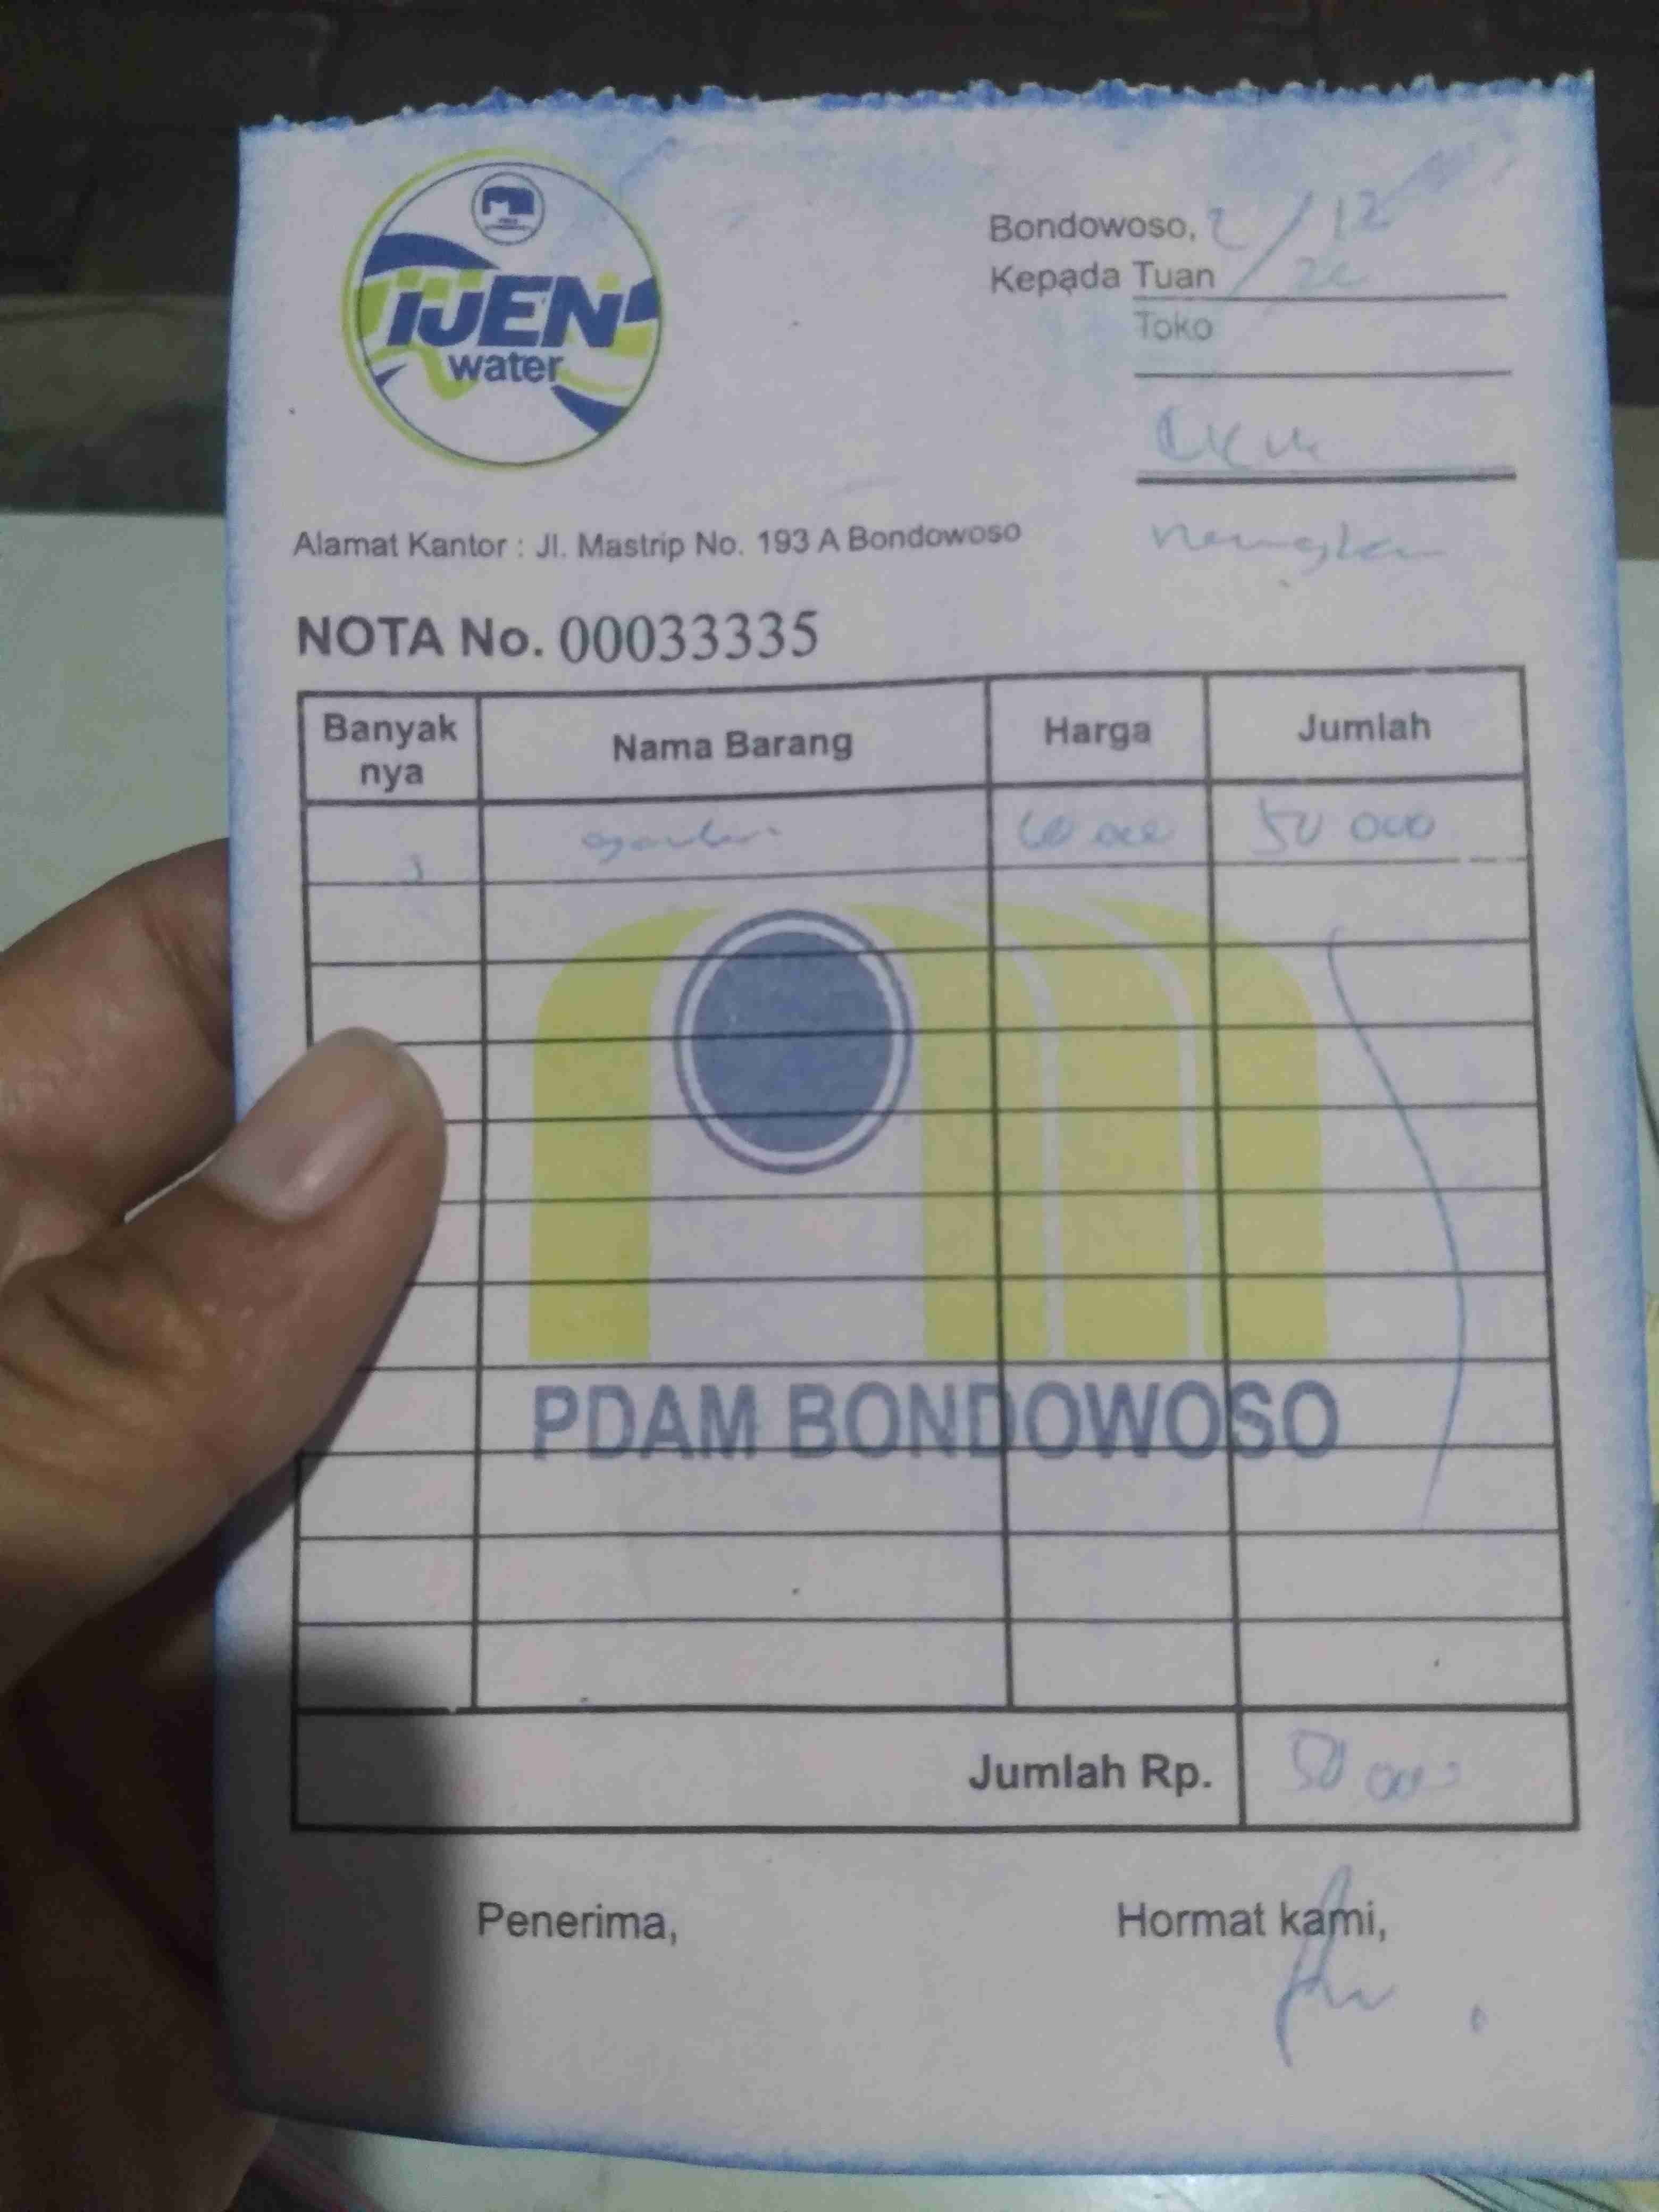 IJEN
water
Bondowoso, 2/12
Kepada Tuan
Toko
Alamat Kantor : Jl. Mastrip No. 193 A Bondowoso
NOTA No. 00033335
Banyak nya Nama Barang Harga Jumlah
50 000
PDAM BONDOWOSO
Jumlah Rp. 50 000
Penerima, Hormat kami,